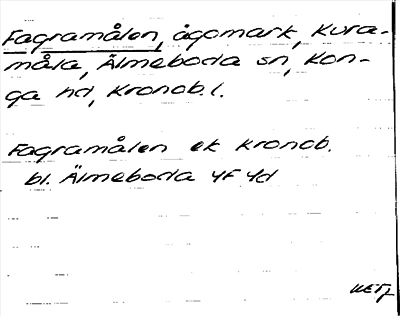 Fagramålen, ägomark, Kura-
måla, Älmeboda sn, Kon-
ga hd, Kronob. l.
Fagramålen ek Kronob.
bl. Älmeboda 4F 4d